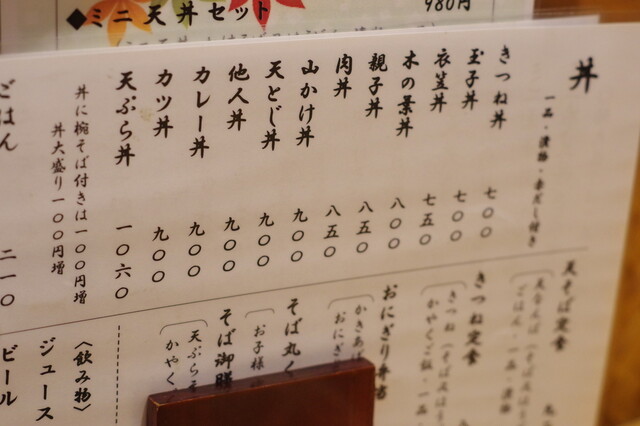 ◆ミニ天丼セット 980円
丼
一品・漬物・赤だし付き
きつね丼 七〇〇
玉子丼 七〇〇
衣笠丼 七五〇
木の葉丼 八〇〇
親子丼 八五〇
肉丼 八五〇
山かけ丼 九〇〇
天とじ丼 九〇〇
他人丼 九〇〇
カレー丼 九〇〇
カツ丼 九〇〇
天ぷら丼 一〇六〇
丼に椀そば付きは一〇〇円増
丼大盛り一〇〇円増
ごはん 二一〇
天そば定食
ごはん・一品・漬物
きつね定食
おにぎり弁当
かきあ
おにぎ
そば丸く
お子様
そば御膳
天ぷらそ
かやく
〈飲み物〉
ジュース
ビール